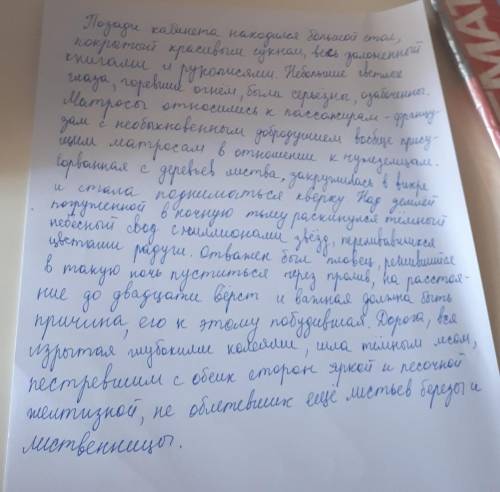 Позади кабинета находился большой стол,
покрытой красивым сукном, весь заложенный
книгами и рукописями. Небольшие светлые
глаза, горевшие огнём, были серьёзны, озабочены.
Матросы относились к пассажирам - францу-
зам с необыкновенным добродушием вообще прису-
щим матросам в отношении к чужеземцам.
Сорванная с деревьев листва, закружилась в вихре
и стала подниматься кверху Над землёй
погруженной в ночную тьму раскинулся тёмный
небесный свод с миллионами звёзд, переливавшихся
цветами радуги. Отважен был пловец, решившийся
в такую ночь пуститься через пролив, на расстоя-
ние до двадцати вёрст и важная должна быть
причина, его к этому побудившая. Дорога, вся
изрытая глубокими колеями, шла тёмным лесом,
пестревшим с обеих сторон яркой и песочной
желтизной, не облетевших ещё листьев берёзы и
лиственницы.
МАТ